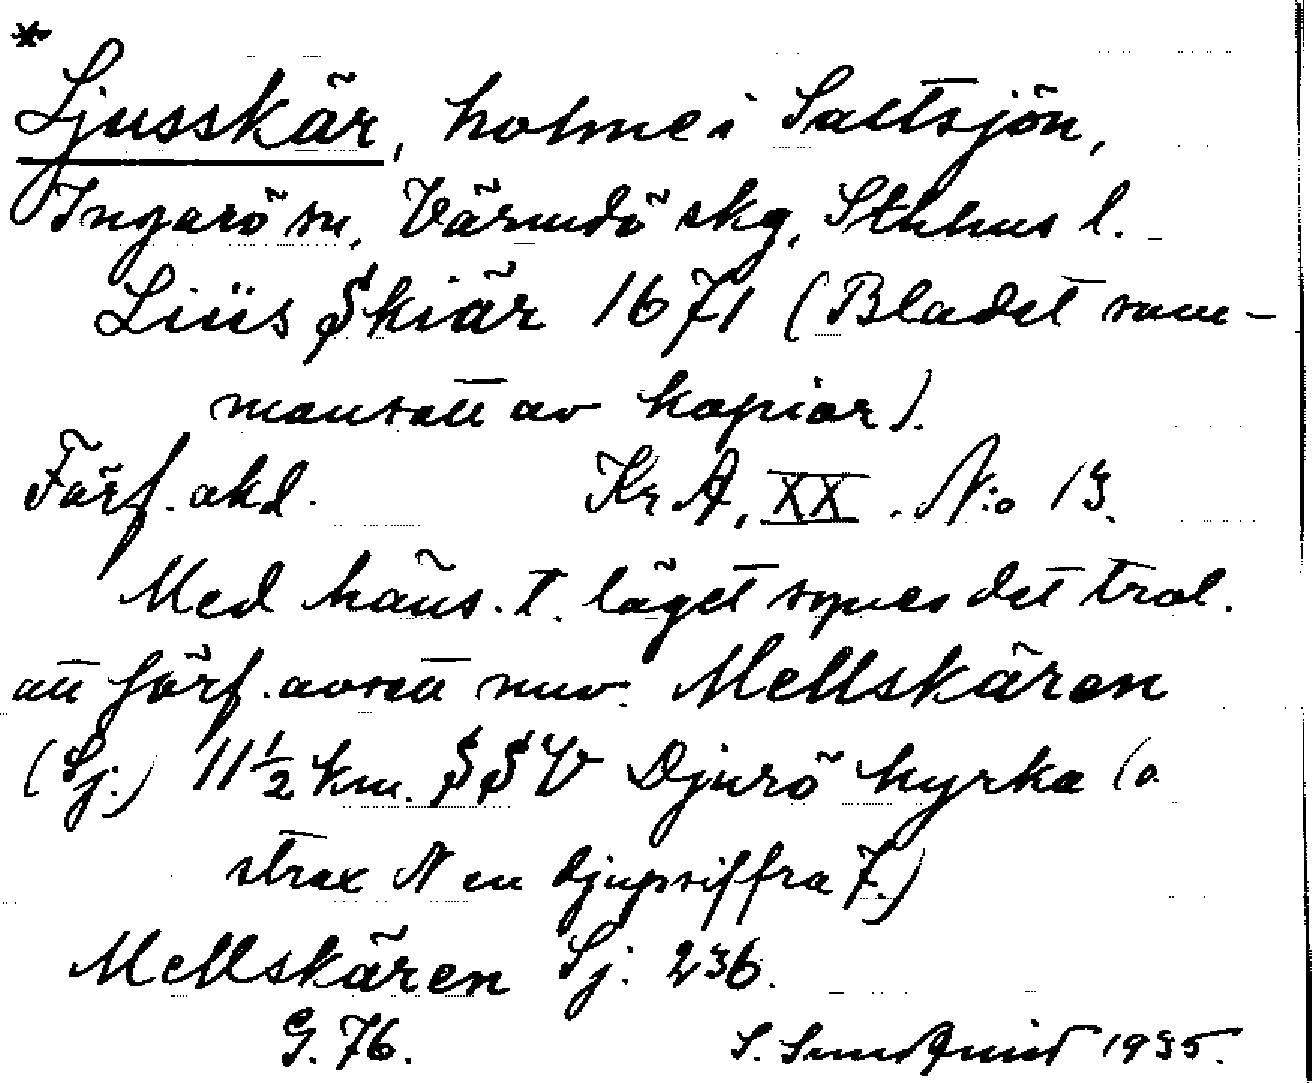 *
Ljusskär, holme i Saltsjön,
Ingarö sn, Värmdö skg, Sthlms l.
Liüs Skiär 1671 (Bladet sam-
mansatt av kopior).
Förf. okd. Kr A, XX. N:o 13.
Med häns. t. läget synes det trol.
att förf. avsett nuv. Mellskären
(Sj.) 11½ km. SSV Djurö kyrka (o
strax N en djupsiffra 7.)
Mellskären Sj. 236.
G. 76. S. Sundquist 1935.